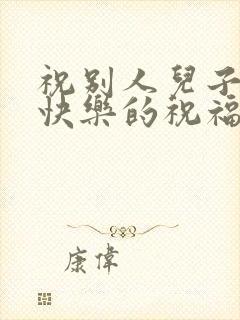 祝別人兒子
快樂的祝福
康偉